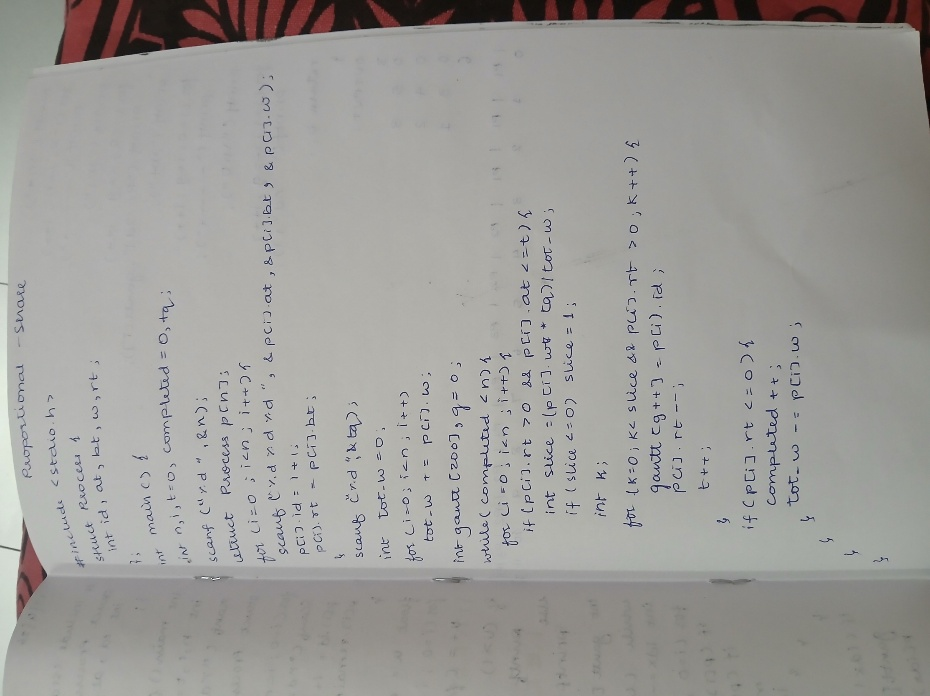 Proportional - Share
#include <stdio.h>
struct Process {
int id, at, bt, w, rt;
};
int main() {
int n, i, t=0, completed = 0, tq;
scanf ("%d", &n);
struct Process p[n];
for (i=0; i<n; i++) {
scanf ("%d %d %d", &p[i].at, &p[i].bt, &p[i].w);
p[i].id = i+1;
p[i].rt = p[i].bt;
}
scanf ("%d", &tq);
int tot-w=0;
for (i=0; i<n; i++)
tot-w += p[i].w;
int gantt [200], g=0;
while (completed <n) {
for (i=0; i<n; i++) {
if (p[i].rt > 0 && p[i].at <=t) {
int slice = (p[i].wt * tq) / tot-w;
if (slice <=0) slice = 1;
int k;
for (k=0; k< slice && p[i].rt > 0; k++) {
gantt [g++] = p[i].id;
p[i].rt --;
t++;
}
if (p[i].rt <=0) {
completed ++;
tot-w -= p[i].w;
}
}
}
}